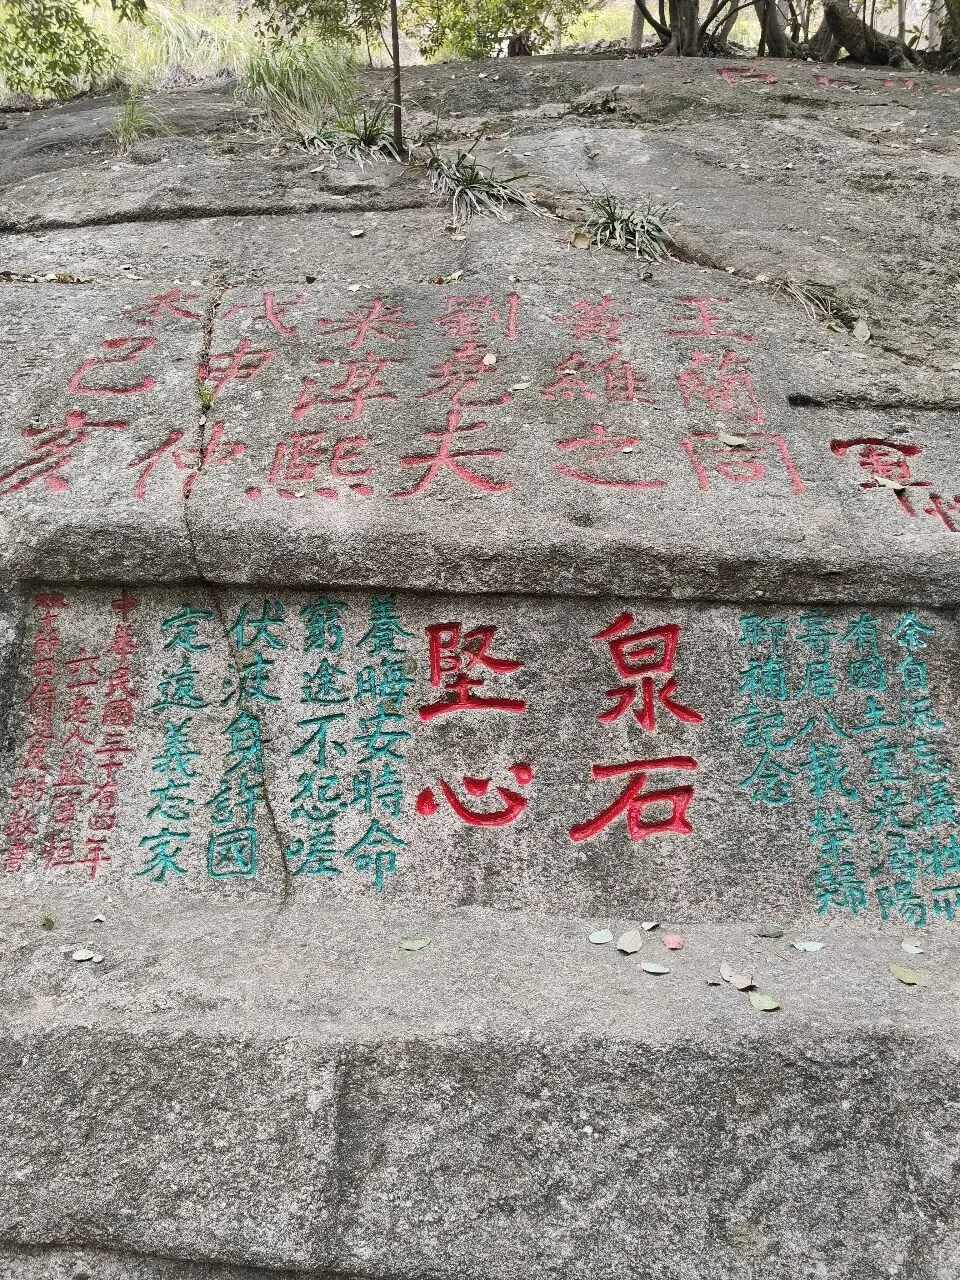 王蘭同
黄維之
劉堯夫
來淳熙
戊申仲
冬己亥
余自
有國土重光潯陽
寄居八載榮歸
聊補記念
泉石
堅心
養晦安時命
窮途不怨嗟
伏波身許國
定遠義忘家
中華民國三十有四年
六一老人